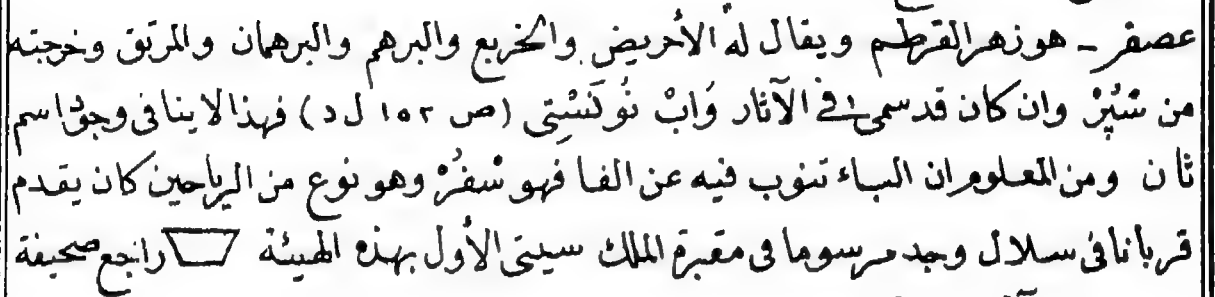 عصفر ـ هو زهر القرطم ويقال له الأحريض والخريع والبرهم والبرهمان والمريق وخرجته
من شپر وان كان قد سمى فى الآثار وَابْ نُو نَسْتِى (ص ١٥٢ ل د) فهذا لا ينافى وجود اسم
ثان ومن المعلوم ان الباء تنوب فيه عن الفا فهو شفر وهو نوع من الرياحين كان يقدم
قربانا فى سلال وجد مرسوما فى مقبرة الملك سيتى الأول بهذه الهيئة راجع صحيفة